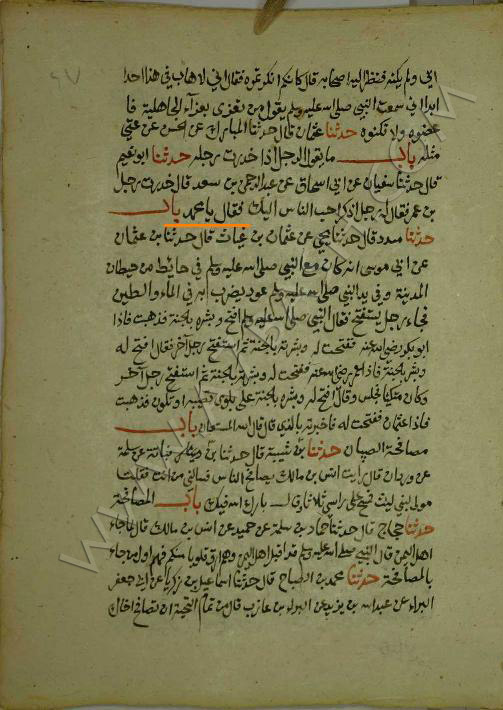 ابي ولم يكنه فنظر اليه اصحابه قال كانكم انكرتموه فقال اني لا هاب في هذا احدا
ابدا اني سمعت النبي صلى الله عليه وسلم يقول من تعزى بعزاء الجاهلية فا
عضوه ولا تكنوه حدثنا عثمان قال حدثنا المبارك عن الحسن عن عتي
مثله باب ما يقول الرجل اذا خدرت رجله حدثنا ابو نعيم
قال حدثنا سفيان عن ابي اسحاق عن عبد الرحمن بن سعد قال خدرت رجل
بن عمر فقال له رجل اذكر احب الناس اليك فقال يا محمد باب
حدثنا مسدد قال حدثنا يحيى عن عثمان بن غياث قال حدثنا بن عثمان
عن ابي موسى انه كان مع النبي صلى الله عليه وسلم في حائط من حيطان
المدينة وفي يد النبي صلى الله عليه وسلم عود يضرب به في الماء والطين
فجاء رجل يستفتح فقال النبي صلى الله عليه وسلم افتح وبشره بالجنة فذهبت فاذا
ابو بكر رضي الله عنه ففتحت له وبشرته بالجنة ثم استفتح رجل آخر فقال افتح له
وبشره بالجنة فاذا عمر رضي الله عنه ففتحت له وبشرته بالجنة ثم استفتح رجل آخر
وكان متكئا فجلس وقال افتح له وبشره بالجنة على بلوى تصيبه او تكون فذهبت
فاذا عثمان ففتحت له فاخبرته بالذي قال قال الله المستعان باب
مصافحة الصبيان حدثنا بن شيبة قال حدثنا بن نباتة عن سلمة
عن وردان قال رايت انس بن مالك يصافح الناس فسالني من انت فقلت
مولى لبني ليث فمسح على راسي ثلاثا وقال بارك الله فيك باب المصافحة
حدثنا حجاج قال حدثنا حماد بن سلمة عن حميد عن انس بن مالك قال لما جاء
اهل اليمن قال النبي صلى الله عليه وسلم قد اقبل اهل اليمن وهم ارق قلوبا منكم فهم اول من جاء
بالمصافحة حدثنا محمد بن الصباح قال حدثنا اسماعيل بن زكريا عن ابي جعفر
البراء عن عبد الله بن يزيد عن البراء بن عازب قال من تمام التحية ان تصافح اخاك